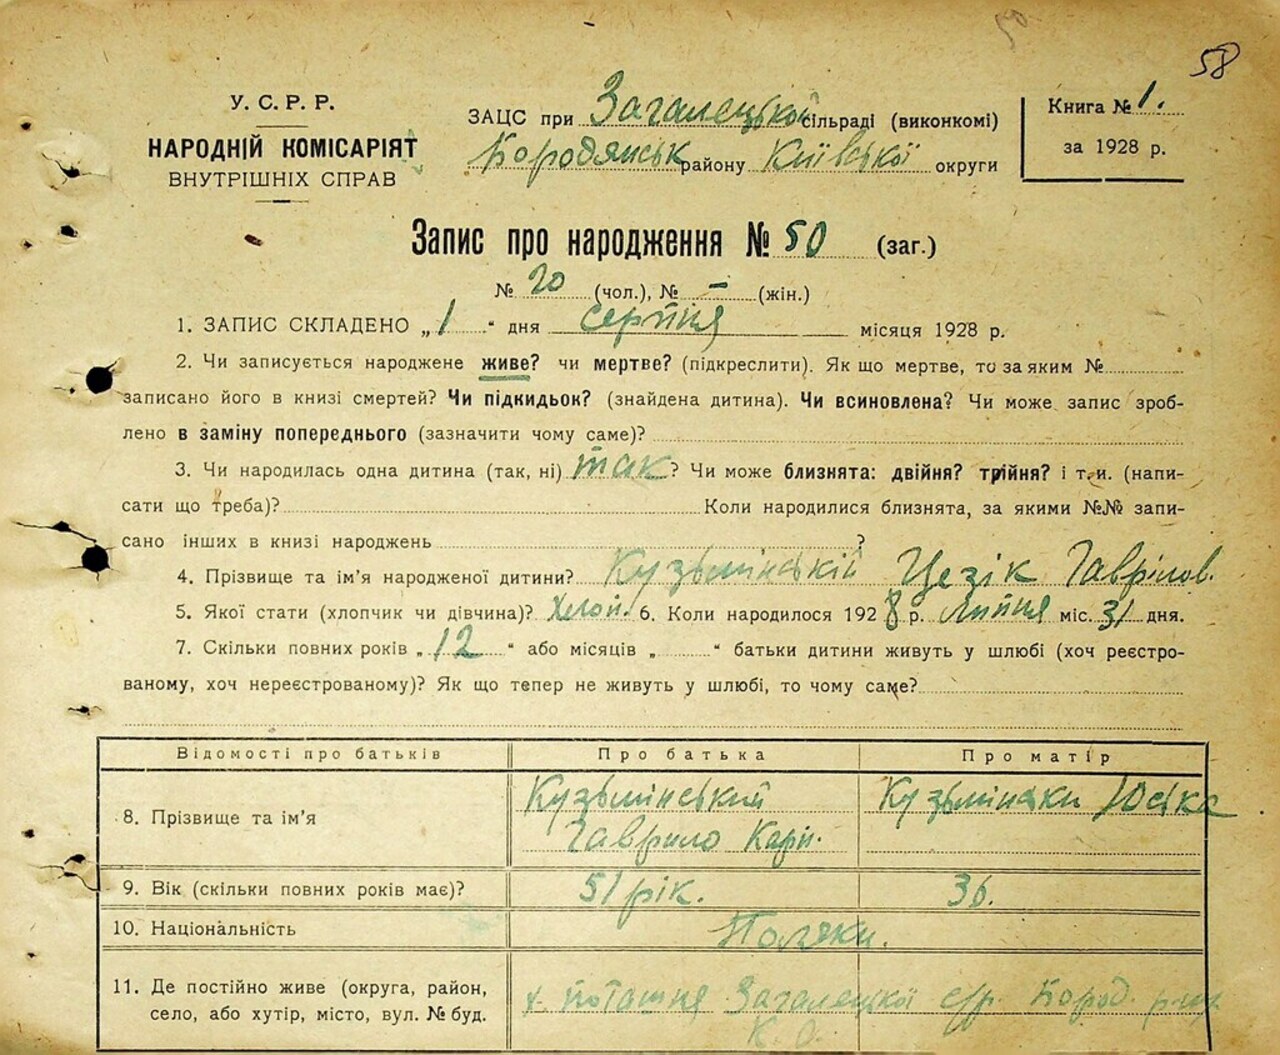 58
У. С. Р. Р.
НАРОДНІЙ КОМІСАРІЯТ
ВНУТРІШНІХ СПРАВ
ЗАЦС при Загалецькой сільраді (виконкомі)
Бородянськ району Київської округи
Книга № 1.
за 1928 р.
Запис про народження № 50 (заг.)
№ 20 (чол.), № – (жін.)
1. ЗАПИС СКЛАДЕНО „1“ дня серпня місяця 1928 р.
2. Чи записується народжене живе? чи мертве? (підкреслити). Як що мертве, то за яким №
записано його в книзі смертей? Чи підкидьок? (знайдена дитина). Чи всиновлена? Чи може запис зроб-
лено в заміну попереднього (зазначити чому саме)?
3. Чи народилась одна дитина (так, ні) так? Чи може близнята: двійня? трійня? і т. и. (напи-
сати що треба)? Коли народилися близнята, за якими №№ запи-
сано інших в книзі народжень ?
4. Прізвище та ім’я народженої дитини? Кузьмінській Цезік Гаврілов.
5. Якої стати (хлопчик чи дівчина)? 6. Коли народилося 1928 р. Липня міс. 31 дня.
7. Скільки повних років „12“ або місяців „ “ батьки дитини живуть у шлюбі (хоч реєстро-
ваному, хоч нереєстрованому)? Як що тепер не живуть у шлюбі, то чому саме?
Відомості про батьків Про батька Про матір
8. Прізвище та ім’я Кузьмінський Гаврило Карп. Юська
9. Вік (скільки повних років має)? 51 рік. 36.
10. Національність Поляки.
11. Де постійно живе (округа, район, х. Поташня Загалецкої с/р. Бород. р-ну
село, або хутір, місто, вул. № буд. К. О.